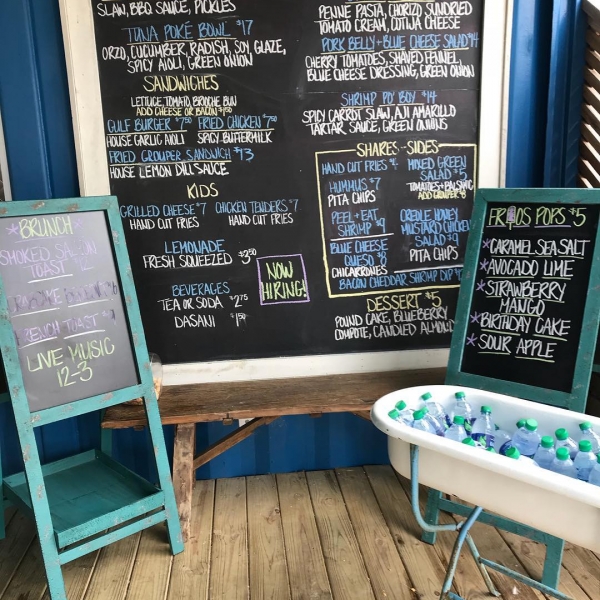 SLAW, BBQ SAUCE, PICKLES
TUNA POKE BOWL $17
ORZO, CUCUMBER, RADISH, SOY GLAZE,
SPICY AIOLI, GREEN ONION
SANDWICHES
LETTUCE, TOMATO, BRIOCHE BUN
ADD CHEESE OR BACON $1.50
GULF BURGER $7.50 FRIED CHICKEN $7.50
HOUSE GARLIC AIOLI SPICY BUTTERMILK
FRIED GROUPER SANDWICH $13
HOUSE LEMON DILL SAUCE
KIDS
GRILLED CHEESE $7 CHICKEN TENDERS $7
HAND CUT FRIES HAND CUT FRIES
LEMONADE
FRESH SQUEEZED $3.50
BEVERAGES
TEA OR SODA $2.75
DASANI $1.50
NOW
HIRING!
PENNE PASTA, CHORIZO, SUNDRIED
TOMATO CREAM, COTIJA CHEESE
PORK BELLY + BLUE CHEESE SALAD $14
CHERRY TOMATOES, SHAVED FENNEL,
BLUE CHEESE DRESSING, GREEN ONION
SHRIMP PO' BOY $14
SPICY CARROT SLAW, AJI AMARILLO
TARTAR SAUCE, GREEN ONIONS
SHARES - SIDES
HAND CUT FRIES
HUMMUS $7
PITA CHIPS
PEEL + EAT
SHRIMP
BLUE CHEESE
QUESO $8
CHICARRONES
MIXED GREEN
SALAD $5
TOMATOES + BALSAMIC
ADD GROUPER $8
CREOLE HONEY
MUSTARD CHICKEN
SALAD $9
PITA CHIPS
BACON CHEDDAR SHRIMP DIP
DESSERT $5
POUND CAKE, BLUEBERRY
COMPOTE, CANDIED ALMOND
BRUNCH
SMOKED SALMON
TOAST
FRENCH TOAST
LIVE MUSIC
12-3
FRIOS POPS $5
CARAMEL SEA SALT
AVOCADO LIME
STRAWBERRY
MANGO
BIRTHDAY CAKE
SOUR APPLE